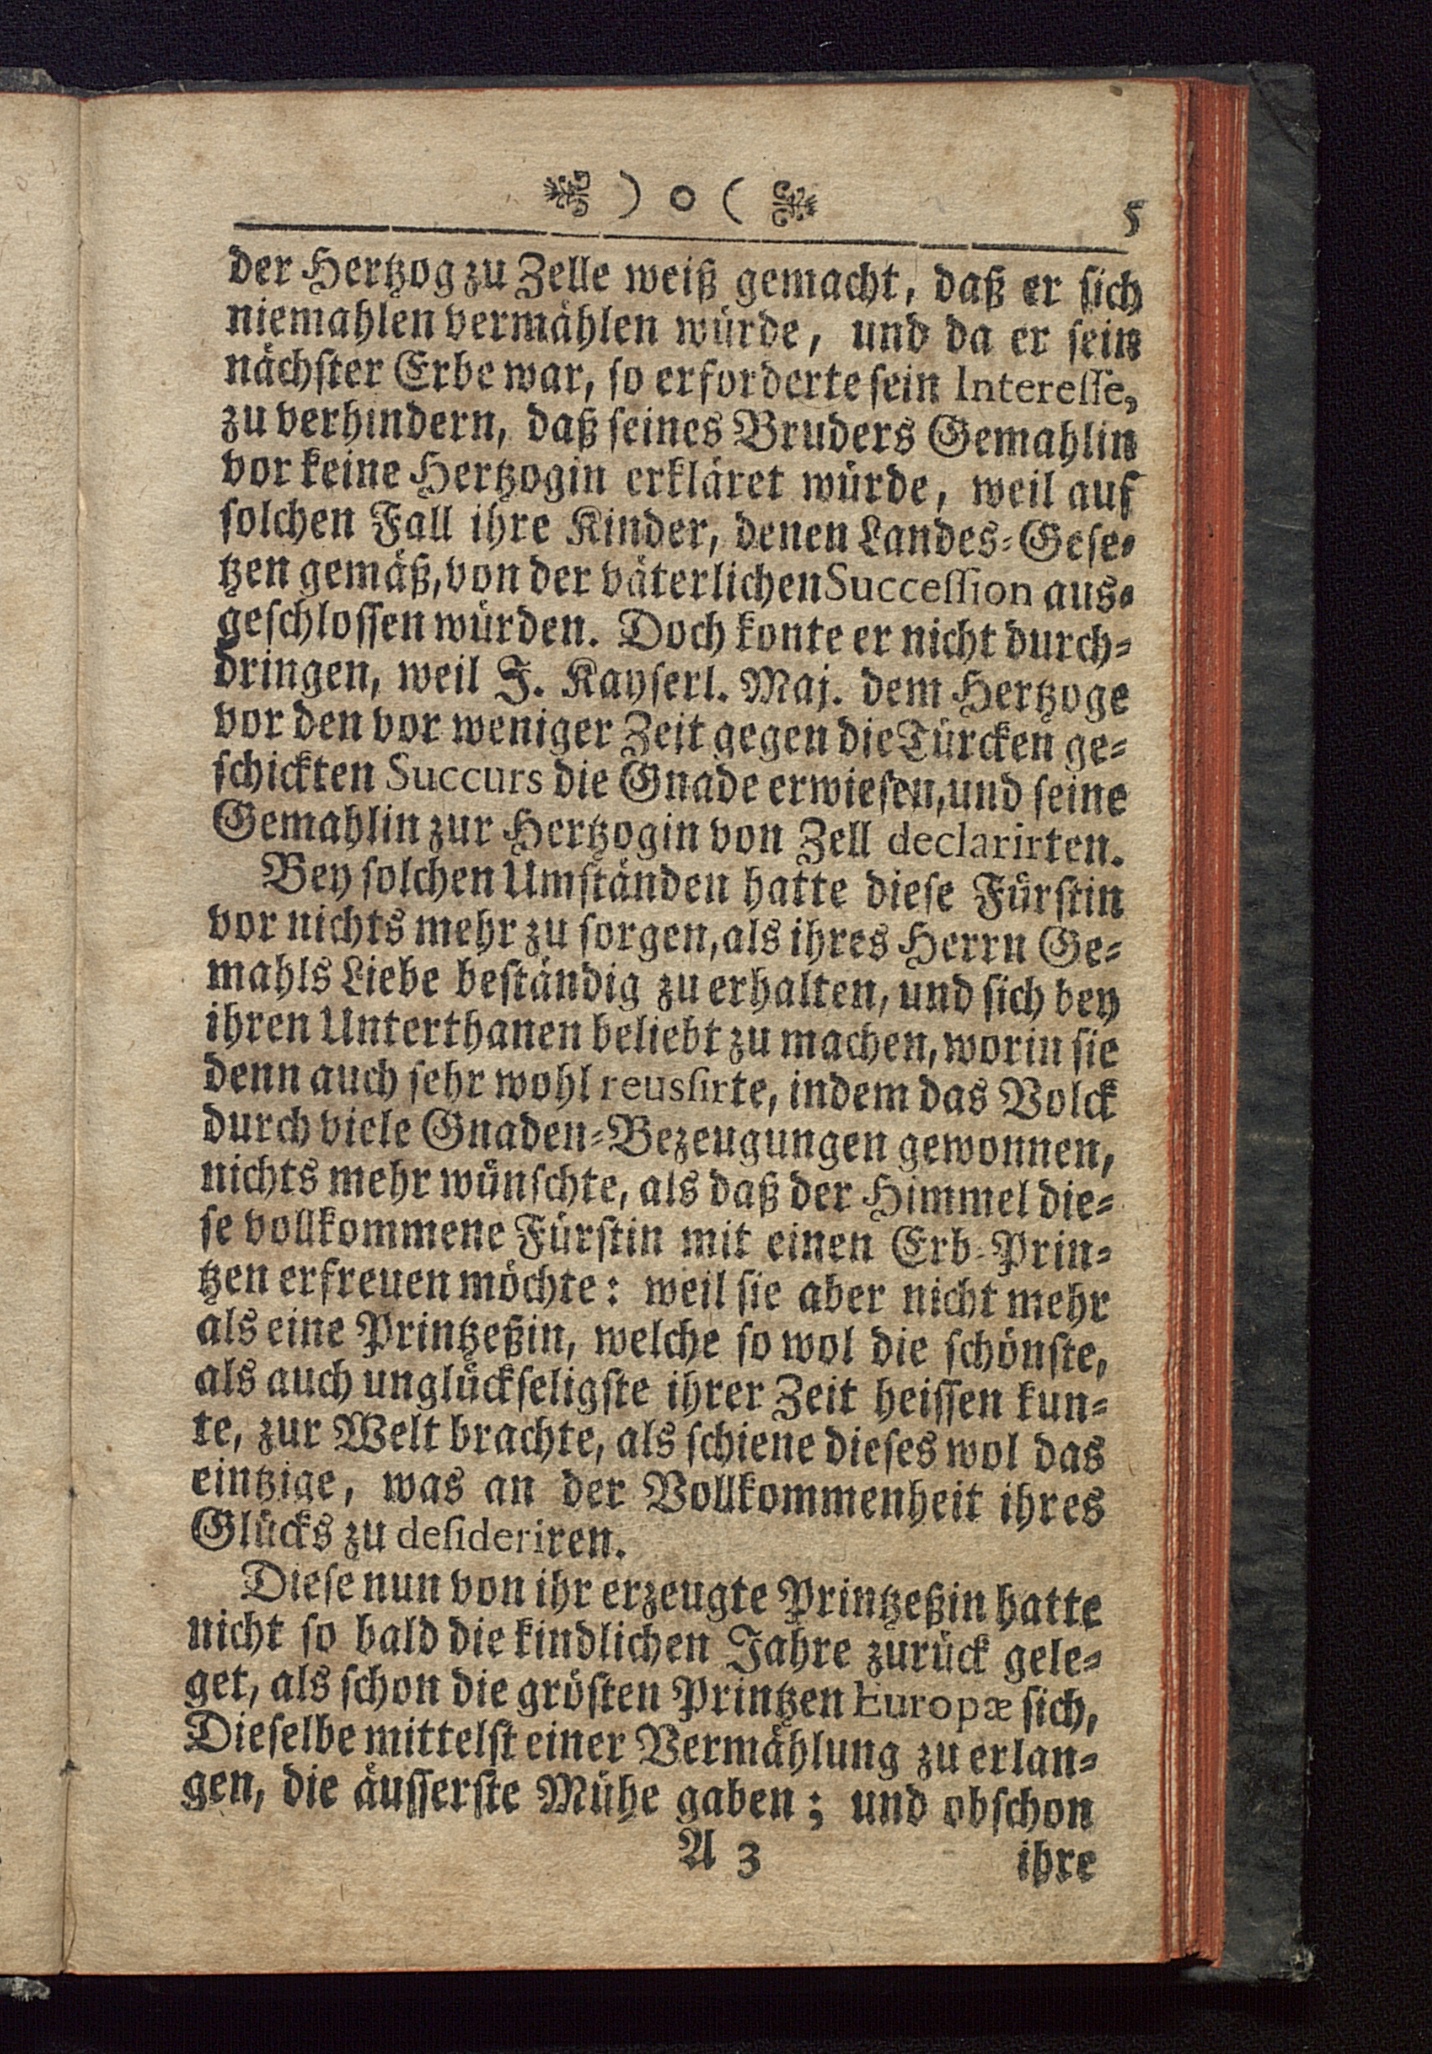 ) o ( 5
der Hertzog zu Zelle weiß gemacht, daß er sich
niemahlen vermählen würde, und da er sein
nächster Erbe war, so erforderte sein Interesse,
zu verhindern, daß seines Bruders Gemahlin
vor keine Hertzogin erkläret würde, weil auf
solchen Fall ihre Kinder, denen Landes-Gese-
tzen gemäß, von der väterlichen Succession aus-
geschlossen würden. Doch konte er nicht durch-
dringen, weil J. Kayserl. Maj. dem Hertzoge
vor den vor weniger Zeit gegen die Türcken ge-
schickten Succurs die Gnade erwiesen, und seine
Gemahlin zur Hertzogin von Zell declarirten.
Bey solchen Umständen hatte diese Fürstin
vor nichts mehr zu sorgen, als ihres Herrn Ge-
mahls Liebe beständig zu erhalten, und sich bey
ihren Unterthanen beliebt zu machen, worin sie
denn auch sehr wohl reussirte, indem das Volck
durch viele Gnaden-Bezeugungen gewonnen,
nichts mehr wünschte, als daß der Himmel die-
se vollkommene Fürstin mit einen Erb-Prin-
tzen erfreuen möchte: weil sie aber nicht mehr
als eine Printzeßin, welche so wol die schönste,
als auch unglückseligste ihrer Zeit heissen kun-
te, zur Welt brachte, als schiene dieses wol das
eintzige, was an der Vollkommenheit ihres
Glücks zu desideriren.
Diese nun von ihr erzeugte Printzeßin hatte
nicht so bald die kindlichen Jahre zurück gele-
get, als schon die grösten Printzen Europæ sich,
Dieselbe mittelst einer Vermählung zu erlan-
gen, die äusserste Mühe gaben; und obschon
A 3 ihre